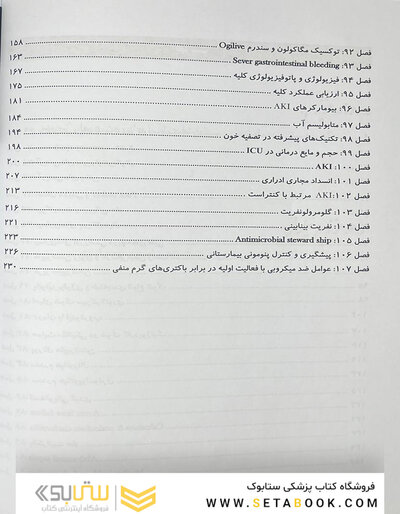 فصل ۹۲: توکسیک مگاکولون و سندرم Ogilive ۱۵۸
فصل ۹۳: Sever gastrointestinal bleeding ۱۶۳
فصل ۹۴: فیزیولوژی و پاتوفیزیولوژی کلیه ۱۶۷
فصل ۹۵: ارزیابی عملکرد کلیه ۱۷۵
فصل ۹۶: بیومارکرهای AKI ۱۸۱
فصل ۹۷: متابولیسم آب ۱۸۴
فصل ۹۸: تکنیک‌های پیشرفته در تصفیه خون ۱۹۴
فصل ۹۹: حجم و مایع درمانی در ICU ۱۹۸
فصل ۱۰۰: AKI ۲۰۰
فصل ۱۰۱: انسداد مجاری ادراری ۲۰۷
فصل ۱۰۲: AKI مرتبط با کنتراست ۲۱۳
فصل ۱۰۳: گلومرولونفریت ۲۱۶
فصل ۱۰۴: نفریت بینابینی ۲۲۱
فصل ۱۰۵: Antimicrobial steward ship ۲۲۳
فصل ۱۰۶: پیشگیری و کنترل پنومونی بیمارستانی ۲۲۶
فصل ۱۰۷: عوامل ضد میکروبی با فعالیت اولیه در برابر باکتری‌های گرم منفی ۲۳۰
فروشگاه کتاب پزشکی ستابوک
WWW.SETABOOK.COM
ستابوک
فروشگاه اینترنتی کتاب